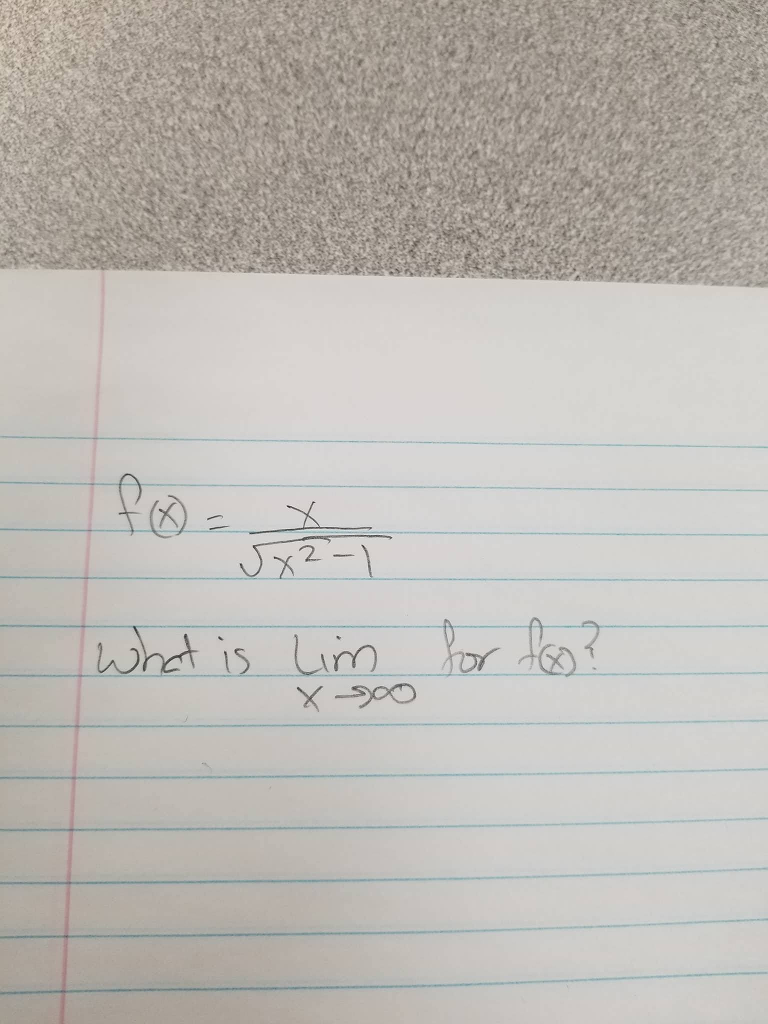 f(x) = x / √x² - 1
What is lim x→∞ for f(x)?